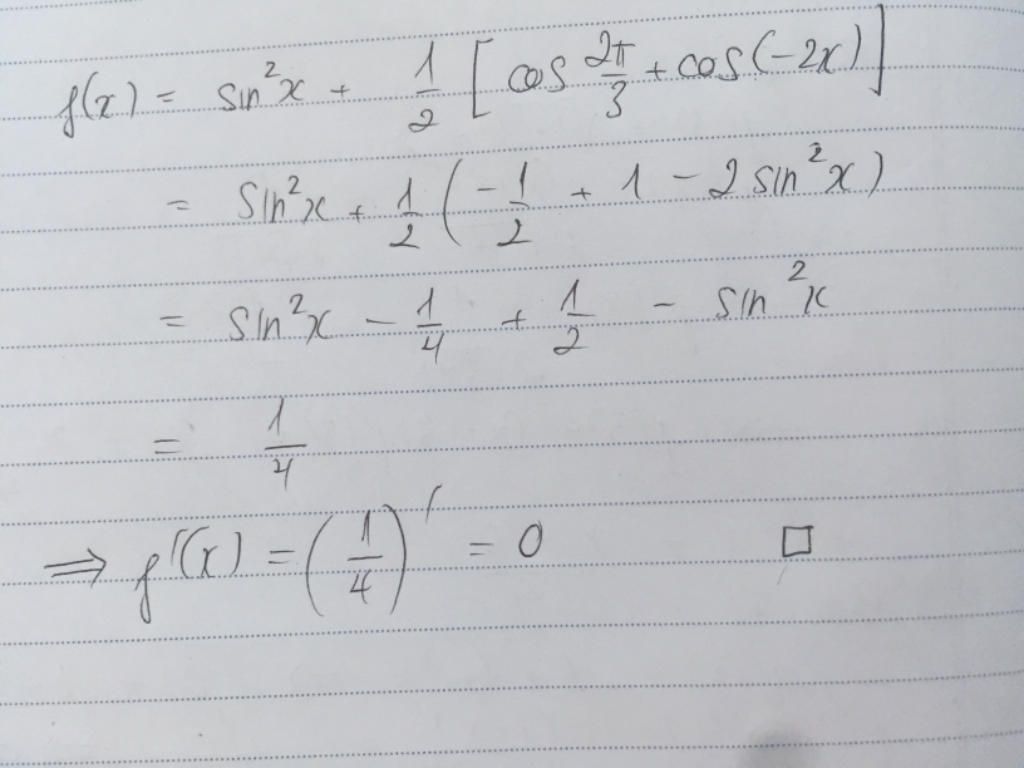 f(x) = sin²x + 1/2 [cos 2π/3 + cos(-2x)]
= sin²x + 1/2 (-1/2 + 1 - 2 sin²x)
= sin²x - 1/4 + 1/2 - sin²x
= 1/4
⇒ f'(x) = (1/4)' = 0 □